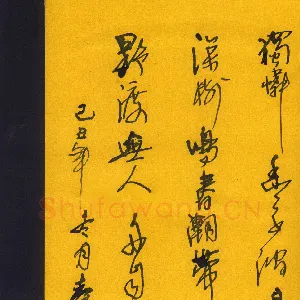 獨憐幽草澗
深樹鳴春潮帶
野渡無人舟自
己丑年
Shufawang.CN